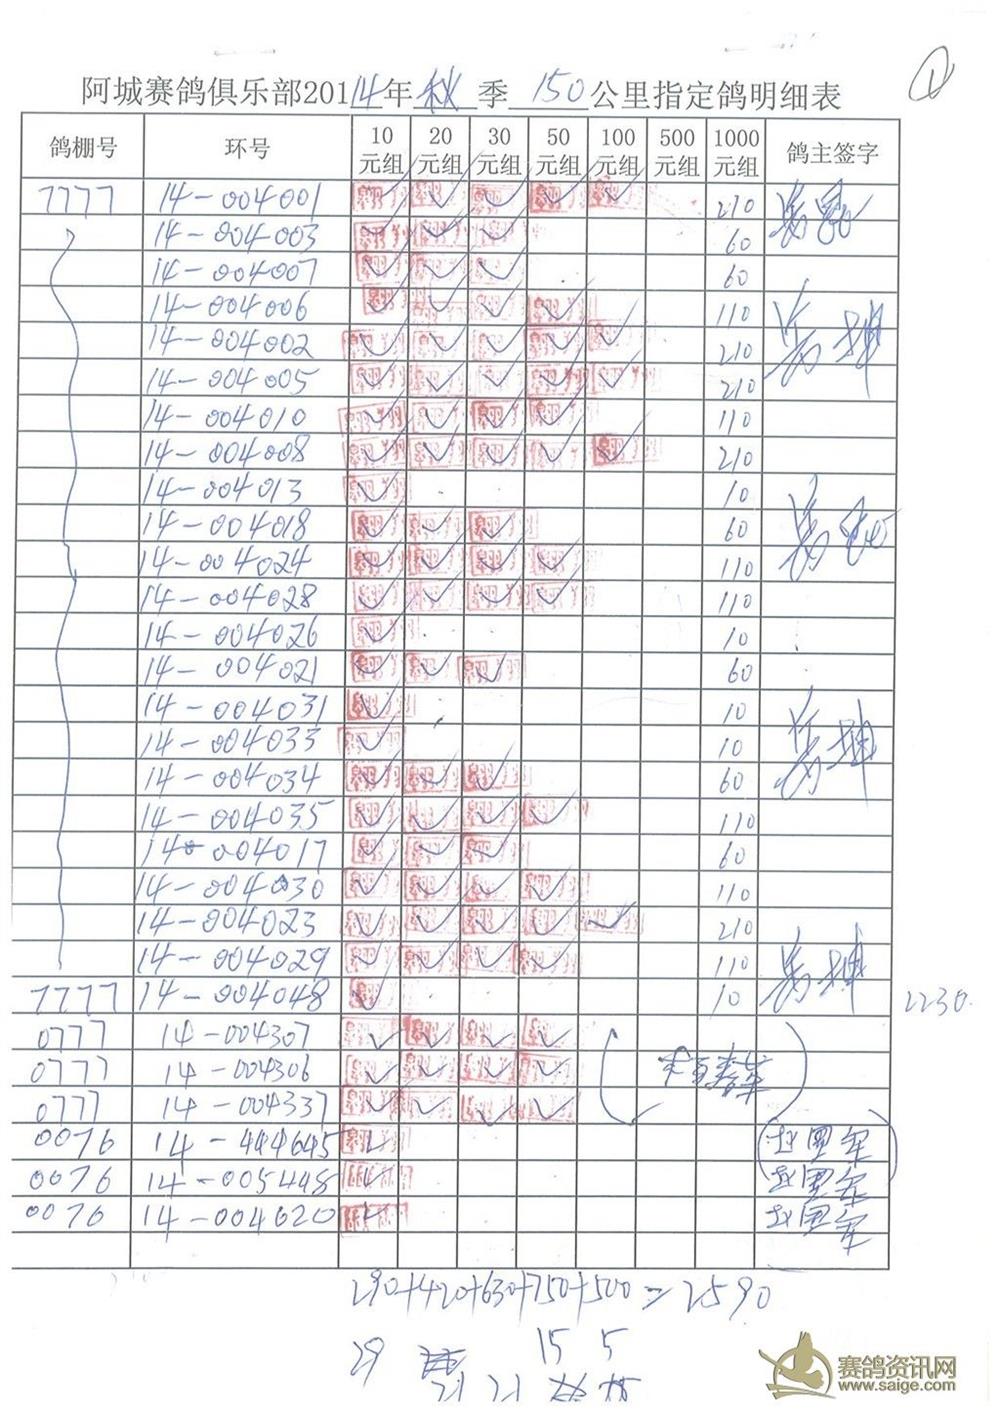 阿城赛鸽俱乐部2014年 秋 季 150 公里指定鸽明细表
鸽棚号 环号 10元组 20元组 30元组 50元组 100元组 500元组 1000元组 鸽主签字
7777 14-004001 ✓ ✓ ✓ ✓ ✓ 210
14-004003 ✓ ✓ ✓ 60
14-004007 ✓ ✓ ✓ 60
14-004006 ✓ ✓ ✓ ✓ 110
14-004002 ✓ ✓ ✓ ✓ ✓ 210
14-004005 ✓ ✓ ✓ ✓ ✓ 210
14-004010 ✓ ✓ ✓ ✓ 110
14-004008 ✓ ✓ ✓ ✓ ✓ 210
14-004013 ✓ 10
14-004018 ✓ ✓ ✓ 60
14-004024 ✓ ✓ ✓ ✓ 110
14-004028 ✓ ✓ ✓ ✓ 110
14-004026 ✓ 10
14-004021 ✓ ✓ ✓ 60
14-004031 ✓ 10
14-004033 ✓ 10
14-004034 ✓ ✓ ✓ 60
14-004035 ✓ ✓ ✓ ✓ 110
14-004017 ✓ ✓ ✓ 60
14-004030 ✓ ✓ ✓ ✓ 110
14-004023 ✓ ✓ ✓ ✓ ✓ 210
14-004029 ✓ ✓ ✓ ✓ 110
7777 14-004048 ✓ 10
2230.
0777 14-004307 ✓ ✓ ✓ ✓
0777 14-004306 ✓ ✓ ✓ ✓
0777 14-004337 ✓ ✓ ✓ ✓
0076 14-444645 ✓
0076 14-005448 ✓
0076 14-004620 ✓
290+420+630+750+500=2590
29 15 5
21 21
赛鸽资讯网
www.saige.com